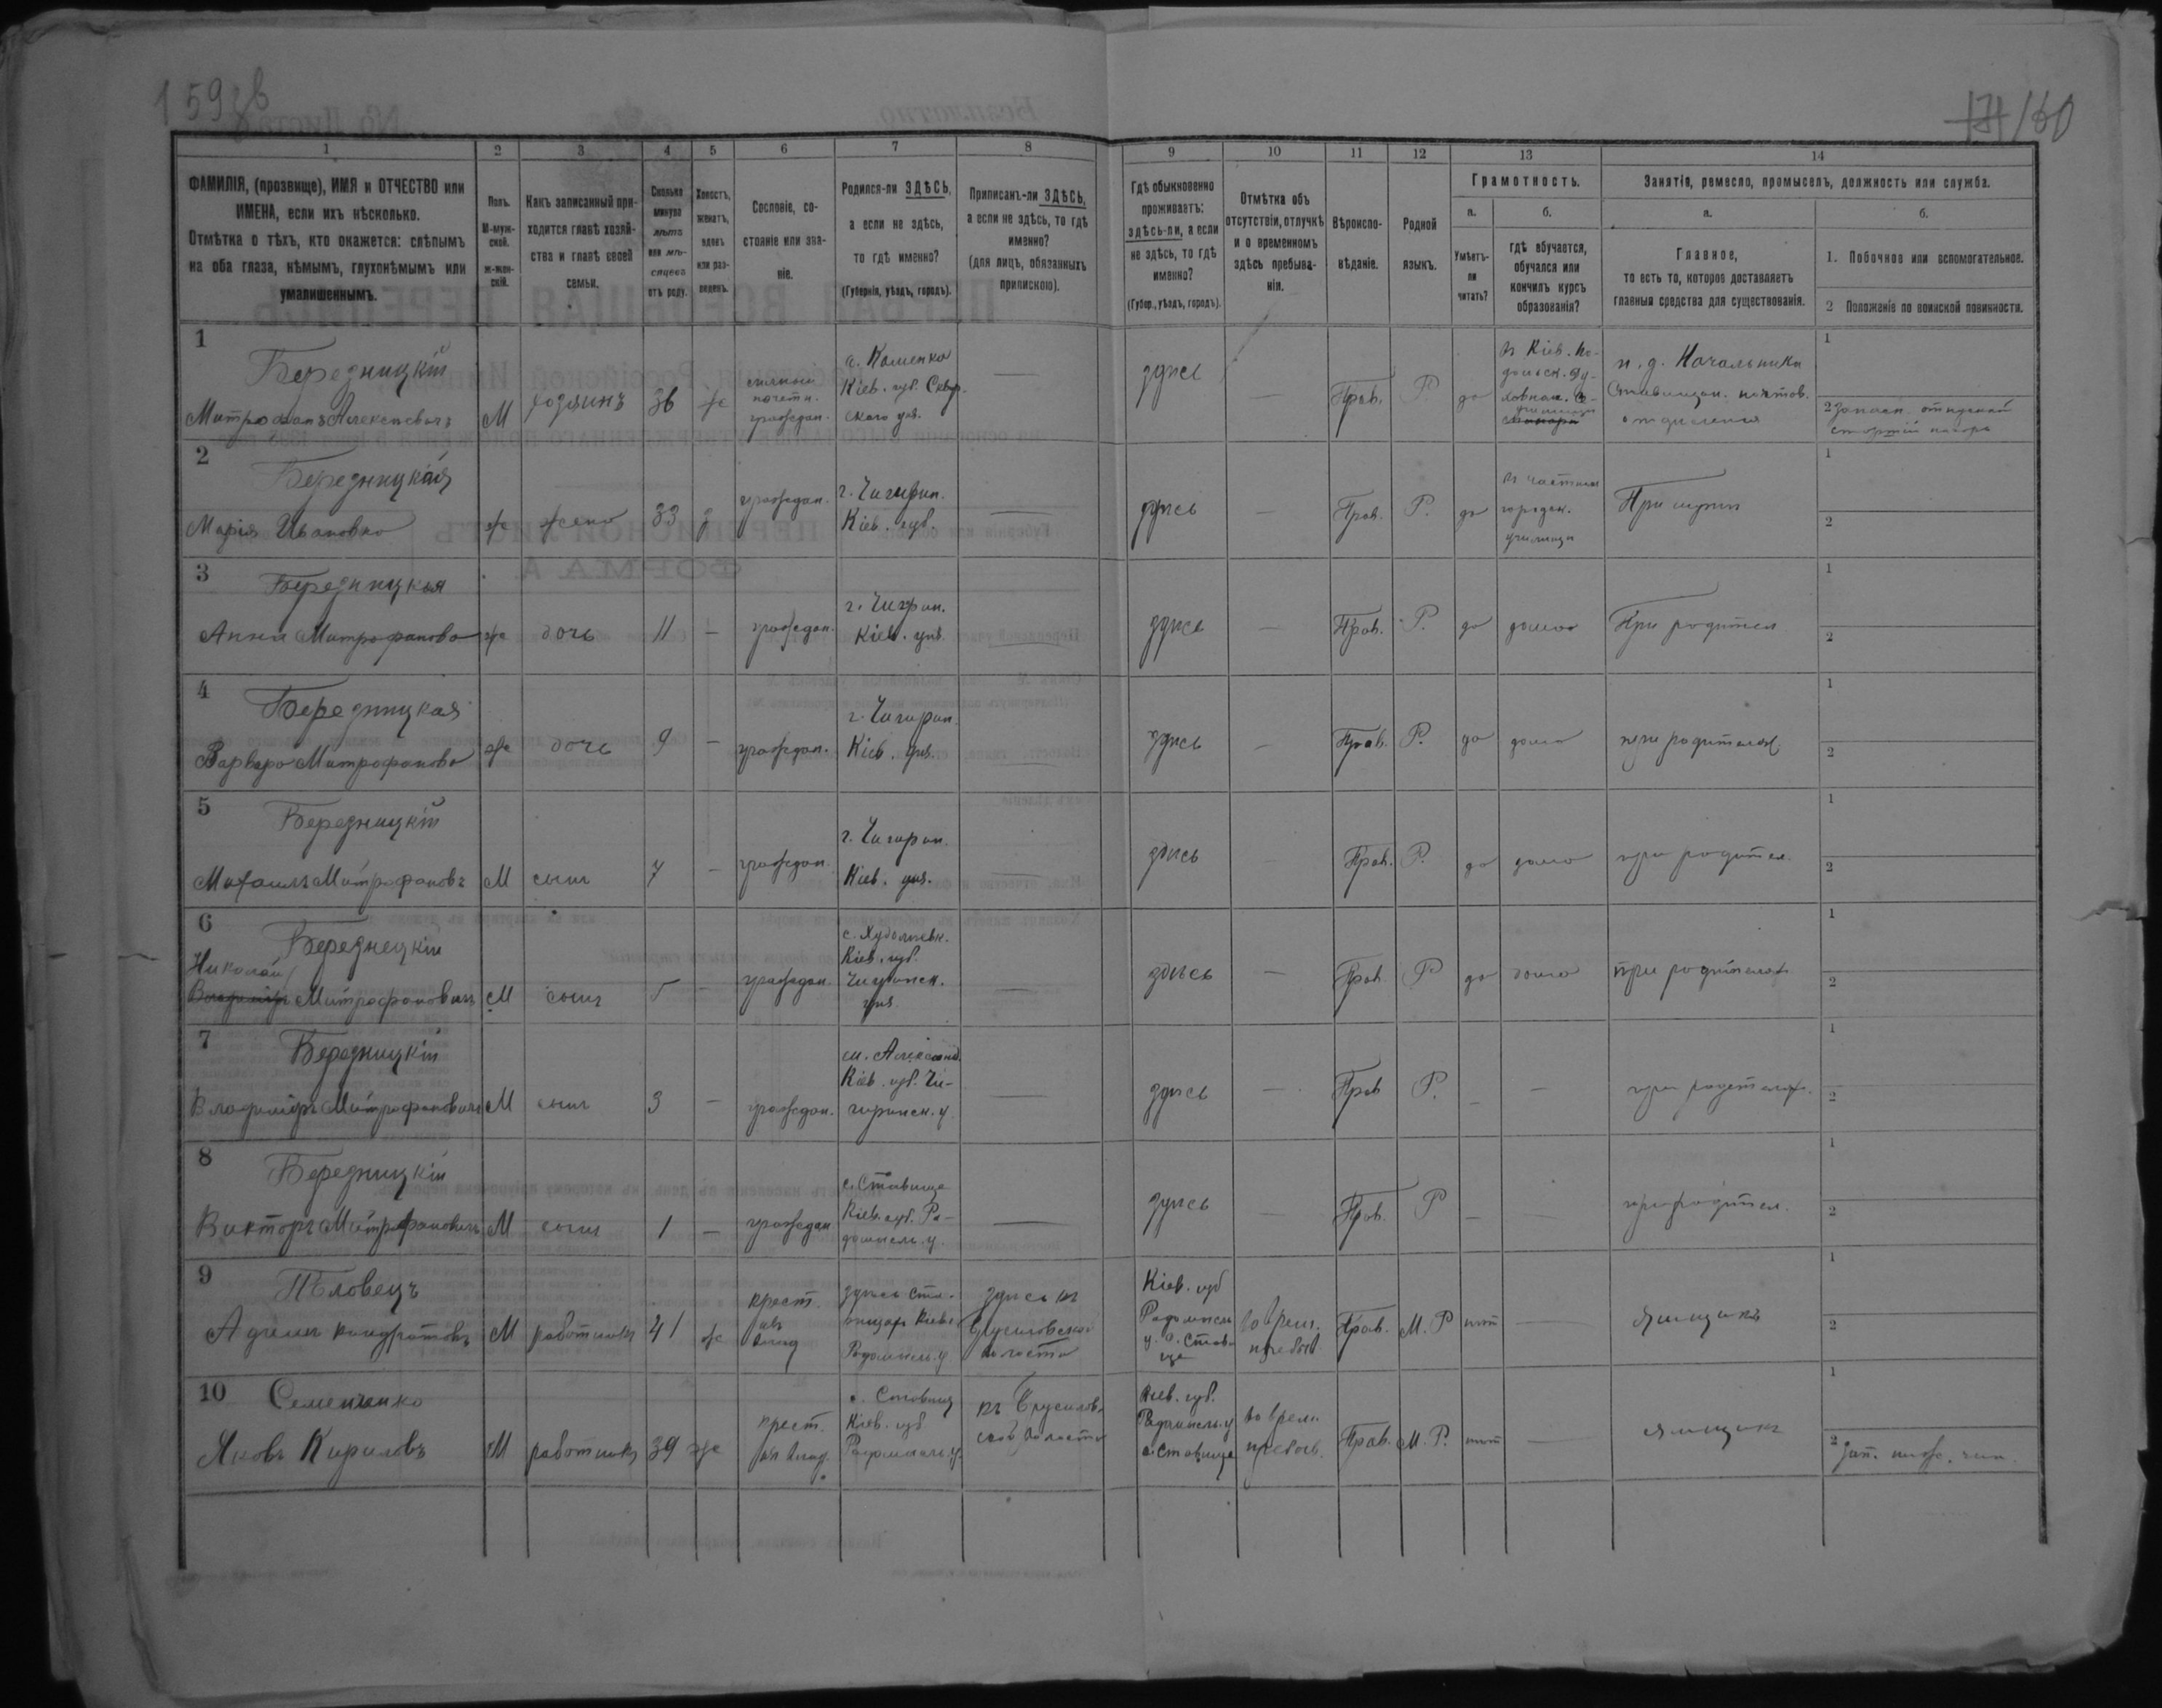 159 зв
171/160
1 2 3 4 5 6 7 8 9 10 11 12 13 14
ФАМИЛІЯ, (прозвище), ИМЯ и ОТЧЕСТВО или
ИМЕНА, если ихъ нѣсколько.
Отмѣтка о тѣхъ, кто окажется: слѣпымъ
на оба глаза, нѣмымъ, глухонѣмымъ или
умалишеннымъ.
Полъ.
М-муж-
ской.
ж-жен-
скій.
Какъ записанный при-
ходится главѣ хозяй-
ства и главѣ своей
семьи.
Сколько
минуло
лѣтъ
или мѣ-
сяцевъ
отъ роду.
Холостъ,
женатъ,
вдовъ
или раз-
веденъ.
Сословіе, со-
стояніе или зва-
ніе.
Родился-ли ЗДѢСЬ,
а если не здѣсь,
то гдѣ именно?
(Губернія, уѣздъ, городъ).
Приписанъ-ли ЗДѢСЬ,
а если не здѣсь, то гдѣ
именно?
(для лицъ, обязанныхъ
припискою).
Гдѣ обыкновенно
проживаетъ:
здѣсь-ли, а если
не здѣсь, то гдѣ
именно?
(Губер., уѣздъ, городъ).
Отмѣтка объ
отсутствіи, отлучкѣ
и о временномъ
здѣсь пребыва-
ніи.
Вѣроиспо-
вѣданіе.
Родной
языкъ.
Грамотность.
а.
Умѣетъ-
ли
читать?
б.
гдѣ обучается,
обучался или
кончилъ курсъ
образованія?
Занятіе, ремесло, промыселъ, должность или служба.
а.
Главное,
то есть то, которое доставляетъ
главныя средства для существованія.
б.
1. Побочное или вспомогательное.
2 Положеніе по воинской повинности.
1
Бередницкій
Митрофанъ Алексѣевичъ
М
хозяинъ
36
ж
личный
почетн.
граждан.
с. Каменка
Кіев. губ. Сквир-
скаго уѣз.
—
здѣсь
—
Прав.
Р.
да
въ Кіев. По-
дольск. Ду-
ховном. У-
чилищѣ
и. д. Начальника
Ставищан. почтов.
отдѣленія
1
2 Запасн. отпускной
старшій писарь
2
Бередницкая
Марія Ивановна
ж
жена
33
з
граждан.
г. Чигирин.
Кіев. губ.
—
здѣсь
—
Прав.
Р.
да
въ частном
городск.
училищѣ
При мужѣ
1
2
3
Бередницкая
Анна Митрофанова
ж
дочь
11
—
граждан.
г. Чигрин.
Кіев. губ.
—
здѣсь
—
Прав.
Р.
да
дома
При родител
1
2
4
Бередницкая
Варвара Митрофанова
ж
дочь
9
—
граждан.
г. Чигирин.
Кіев. губ.
—
здѣсь
—
Прав.
Р.
да
дома
при родителях.
1
2
5
Бередницкій
Михаилъ Митрофановъ
М
сынъ
7
—
граждан.
г. Чигирин.
Кіев. губ.
—
здѣсь
—
Прав.
Р.
да
дома
при родител.
1
2
6
Бередницкій
Николай
Владиміръ Митрофановичъ
М
сынъ
5
—
граждан.
с. Худолѣевк.
Кіев. губ.
Чигринск.
уѣз.
—
здѣсь
—
Прав.
Р
да
дома
при родителях
1
2
7
Бередницкій
Владиміръ Митрофановичъ
М
сынъ
3
—
граждан.
м. Александ.
Кіев. губ. Чи-
гиринск. у.
—
здѣсь
—
Прав
Р.
—
—
при родителях.
1
2
8
Бередницкій
Викторъ Митрофановичъ
М
сынъ
1
—
граждан
с. Ставище
Кіев. губ. Ра-
домысль. у.
—
здѣсь
—
Прав.
Р
—
—
при родител.
1
2
9
М
работникъ
41
ж
крест.
изъ
влад
здѣсь Ста-
вищах Кіев.
Радомысль. у
здѣсь въ
Брусиловской
волости
Кіев. губ
Радомысл
у. с. Стави-
ще
Во врем.
пребыв.
Прав.
М. Р
нѣт
—
Ямщикъ
1
2
10
Семененко
Яковъ Кириловъ
М
работникъ
39
ж
крест.
изъ влад.
с. Ставищ
Кіев. губ
Радомысль. у.
въ Брусилов-
ской волости
Кіев. губ.
Радомысль. у
с. Ставище
Во врем.
пребыв.
Прав.
М. Р.
нѣт
—
Ямщикъ
1
2 Зап. ниж. чин.